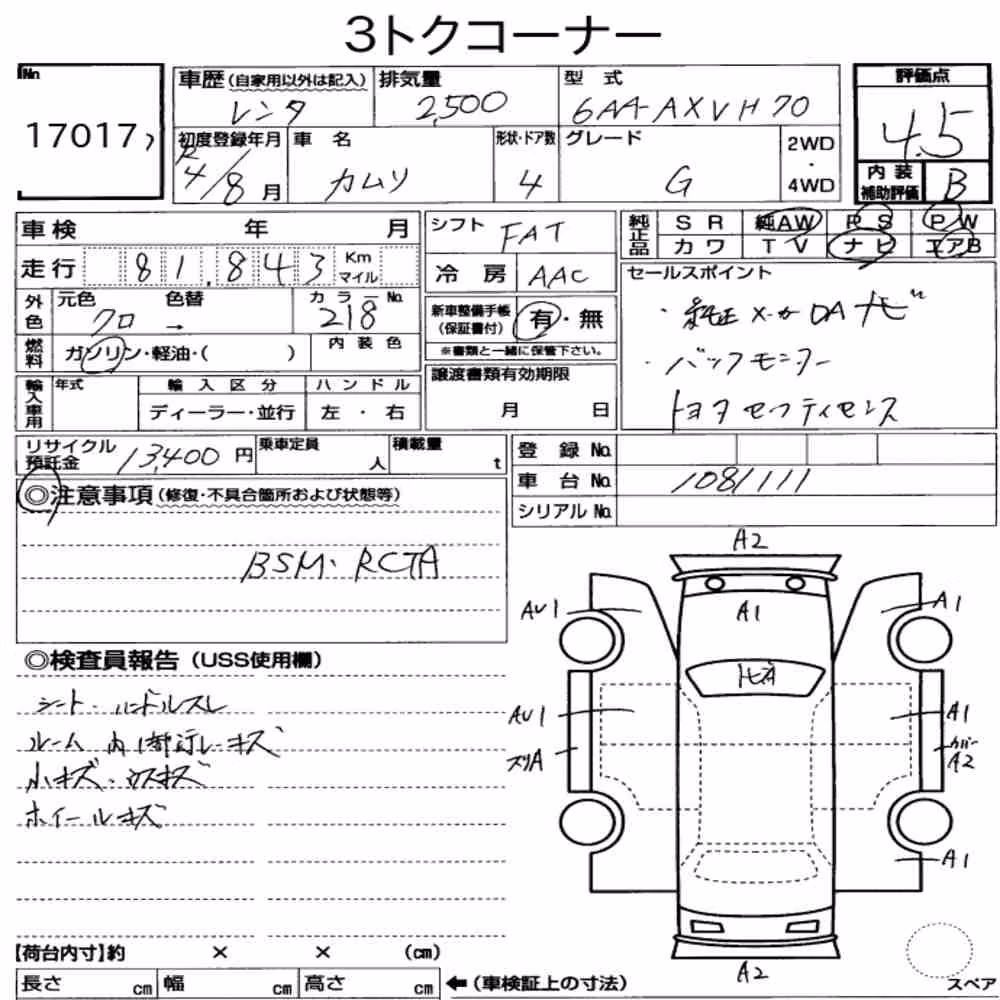 3トクコーナー
No 17017
車歴 (自家用以外は記入) 排気量 型式 評価点
レンタ 2,500 6AA-AXVH70 4.5
初度登録年月 車名 形状・ドア数 グレード 2WD・4WD 内装補助評価 B
R4/8月 カムリ 4 G
車検 年 月 シフト FAT 純正品 SR 純AW PS PW
カワ TV ナビ エアB
走行 81,843 Km マイル 冷房 AAC セールスポイント
外色 元色 色替 カラーNo. 新車整備手帳(保証書付) 有・無 ・純正メーカDAナビ
クロ → 218 ※書類と一緒に保管下さい。
燃料 ガソリン・軽油・( ) 内装色 ・バックモニター
輸入車用 年式 輸入区分 ハンドル 譲渡書類有効期限
ディーラー・並行 左・右 月 日 トヨタセーフティセンス
リサイクル預託金 13,400円 乗車定員 人 積載量 t 登録No.
車台No. 1081111
◎注意事項 (修復・不具合箇所および状態等) シリアルNo.
BSM・RCTA
◎検査員報告 (USS使用欄)
シート・ハンドルスレ
ルーム内1部汚レキズ
小キズ・ウスキズ
ホイールキズ
A2
AU1 A1 A1
トビA
AU1 A1
スリA カバーA2
A1
A2
【荷台内寸】約 × × (cm)
長さ cm 幅 cm 高さ cm ←(車検証上の寸法) スペア